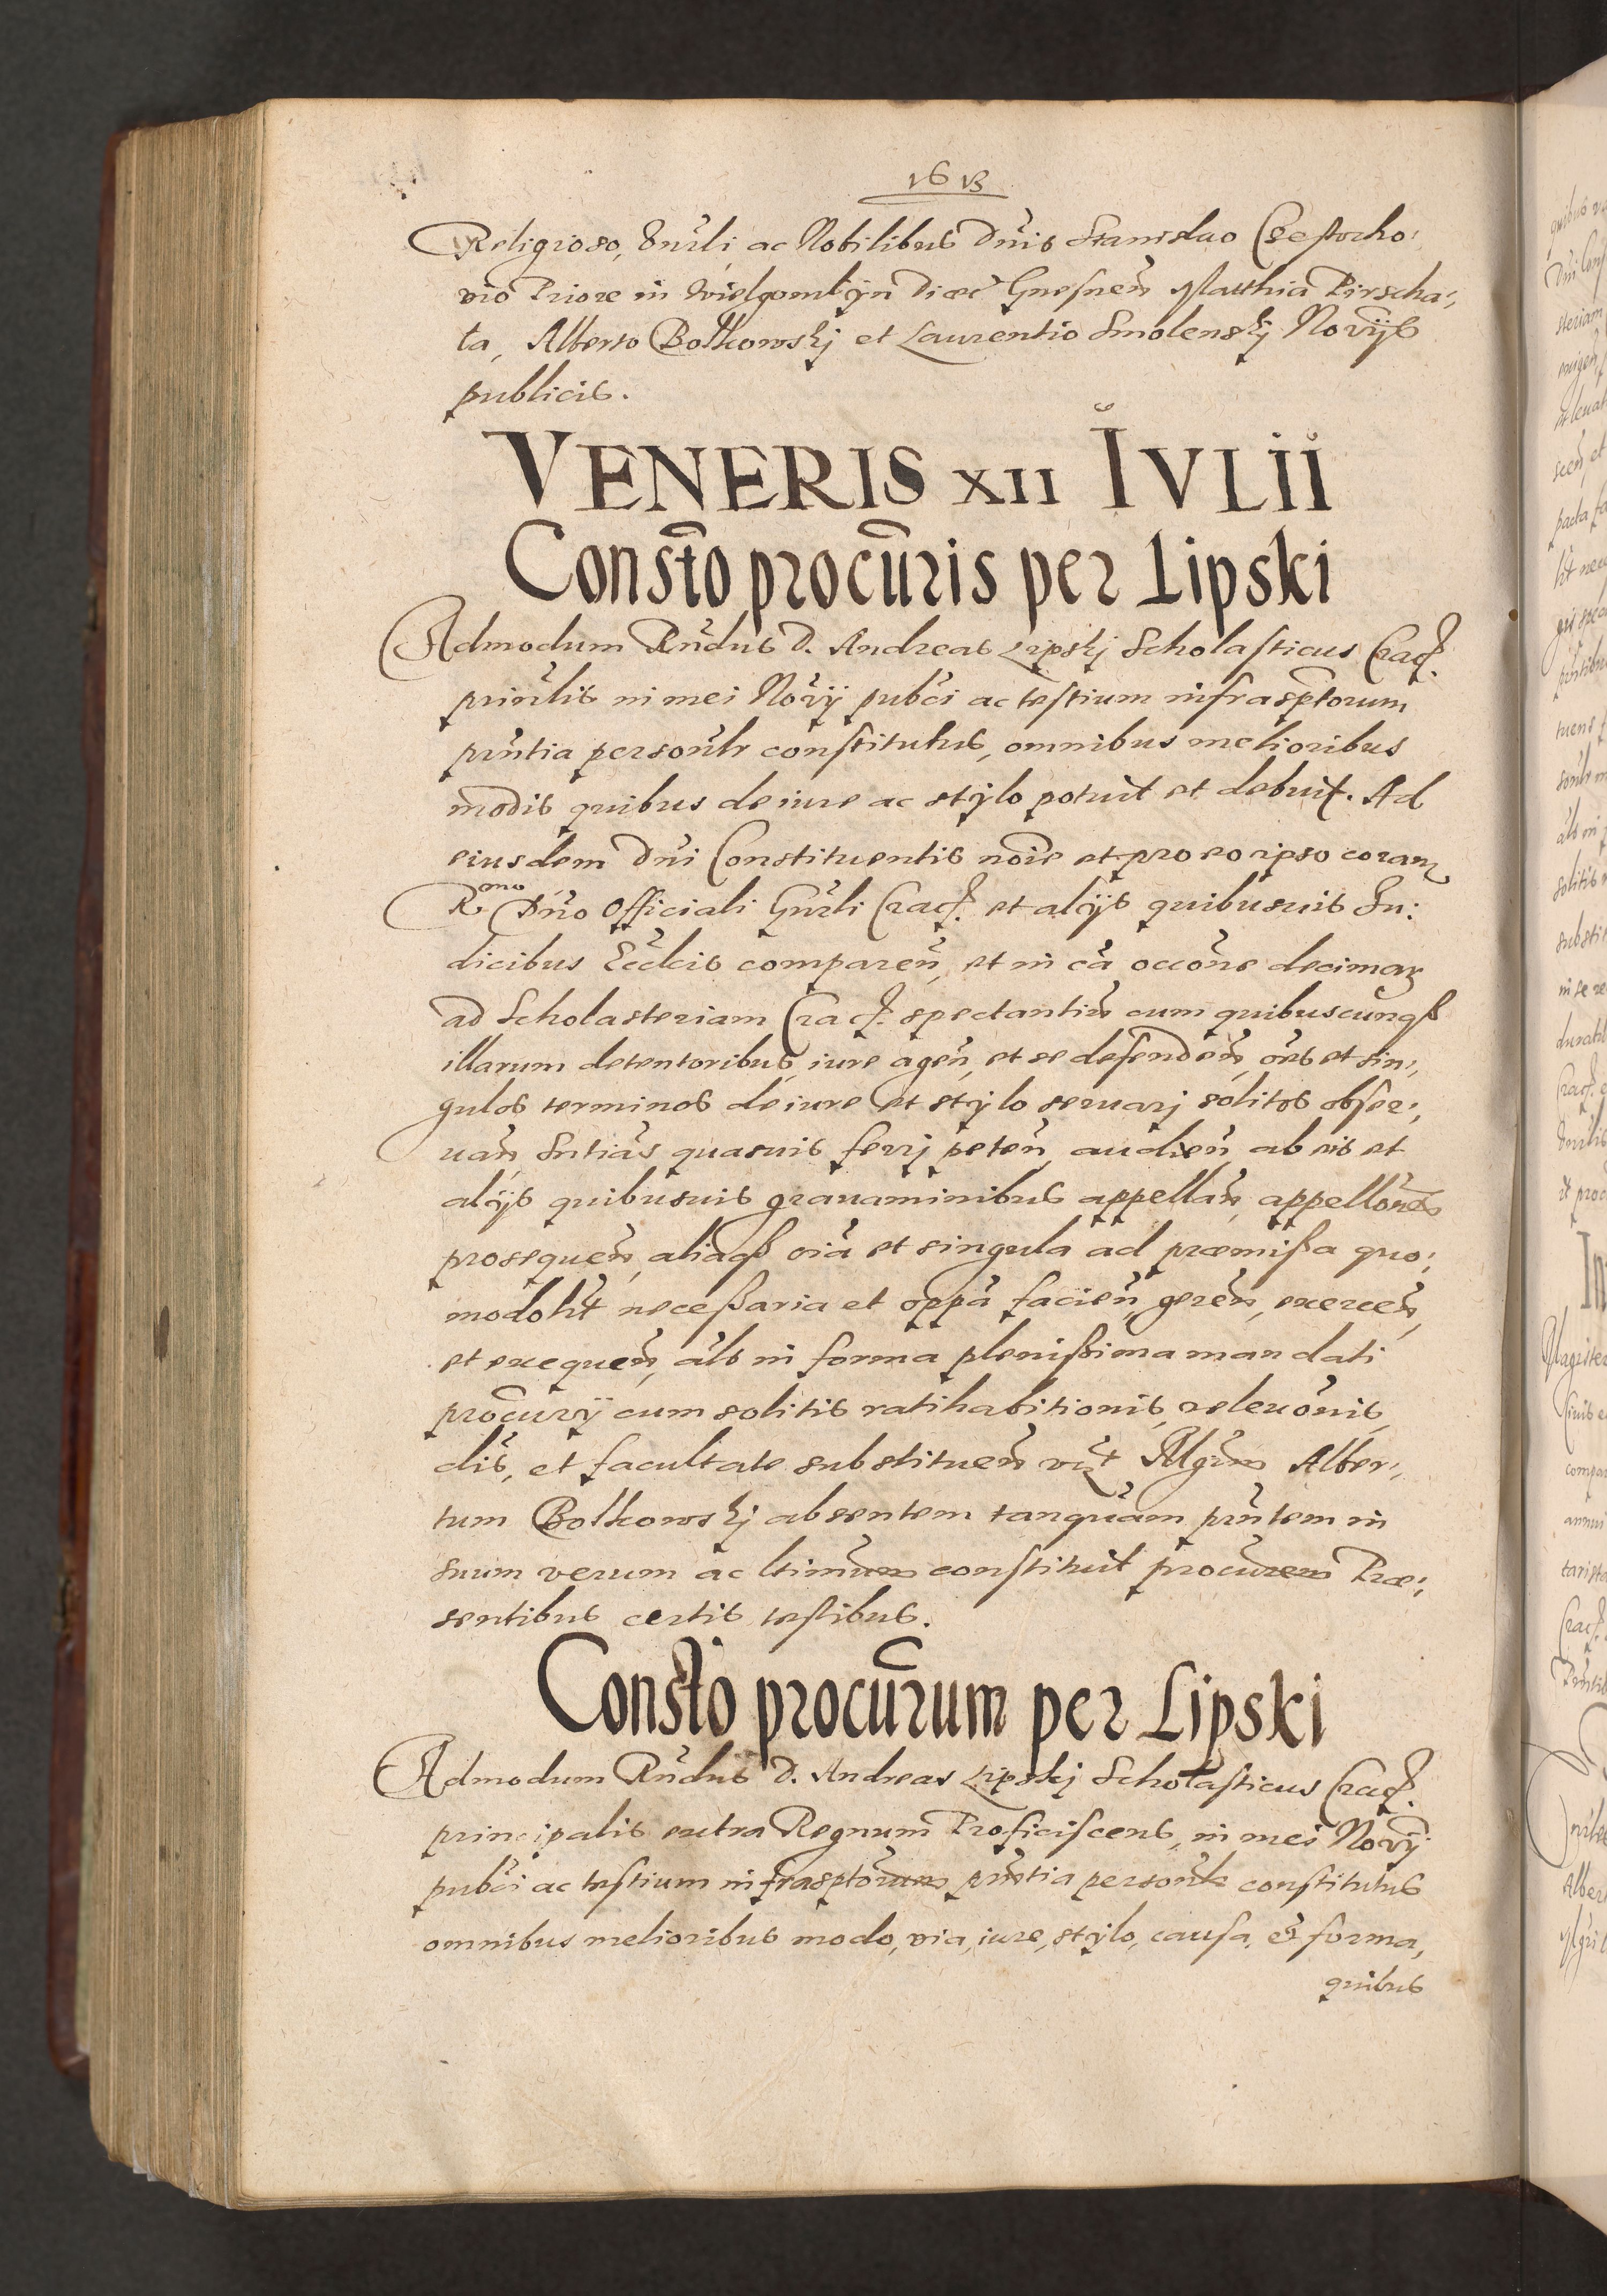 1613
Religioso, Gnrli, ac Nobilibus Dnis Stanislao Cżestocho:
vio Priore in Wielgomlÿn Diœc Gnesnen Matthia Pirscha:,
ta, Alberto Bolkowskj et Laurentio Smolenskj Novijs
publicis.
VENERIS XII IVLII
Consto procuris per Lipski
Admodum Rndus D. Andreas Lipskj Scholasticus Crac.
prinlis in mei Norij pubci ac testium infrasptorum
pntia personlr constitutus, omnibus melioribus
modis quibus de iure ac stÿlo potuit et debuit. Ad
eiusdem Dni Constituentis noie et pro eo ipso coram
Rmo Dno Officiali Gnrli Crac. et alijs quibusuis Iu:
dicibus Eccleis comparen, et in ca occone decimar
ad Scholasteriam Crac. spectantiu cum quibuscunq
illarum detentoribus, iure agen, et se defenden, oes et sin:,
gulos terminos de iure et stÿlo seruarj solitos obser:,
uan, Sntias quasuis ferrj peten, audien, ab eis et
alijs quibusuis grauaminibus appellan, appellones
prosequen, aliaq oia et singula ad præmißa quo:
modolt neceßaria et oppa facien, geren, exercen,
et exequen, als in forma plenißima mandati
procurij cum solitis ratihabitionis, releuonis,
dis, et facultate substituen vit Mgrum Alber:,
tum Bolkowskj absentem tanquam pntem in
suum verum ac ltimum constituit procurem Præ:,
sentibus certis testibus.
Consto procurum per Lipski
Admodum Rndus D. Andreas Lipskj Scholasticus Crac.
principalis extra Regnum Proficiscens, in mei Norij
pubci ac testium infrasptorum pntia personlr constitutus
omnibus melioribus modo, via, iure, stÿlo, causa, et forma,
quibus